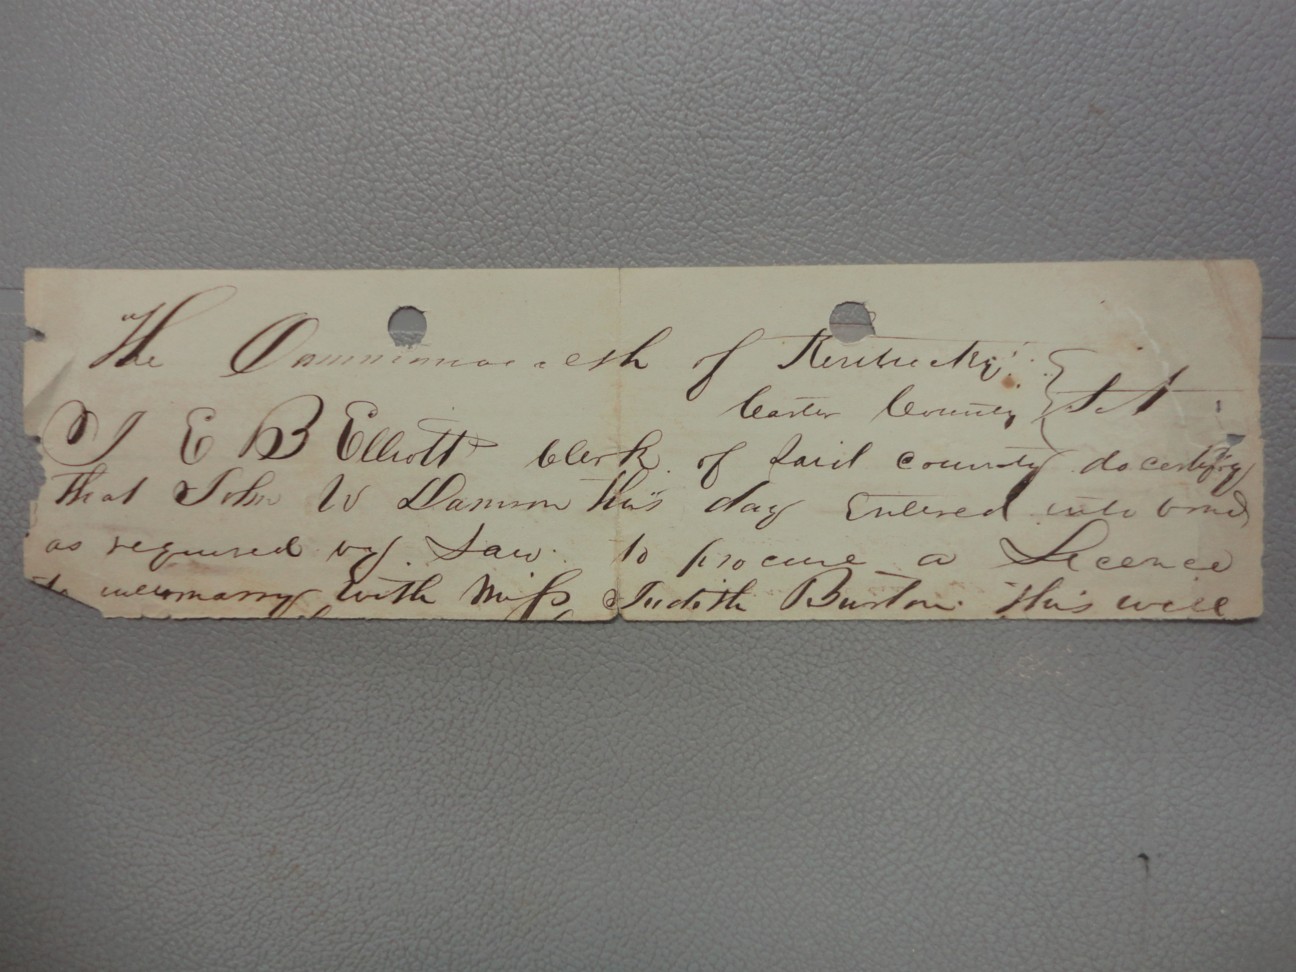 The Commonwealth of Kentucky
Carter County } Sct
I E B Elliott Clerk of said county do certify
that John W Damron this day Entered into bond
as required by Law to procure a Licence
to intermarry with Miss Judith Burton. This will